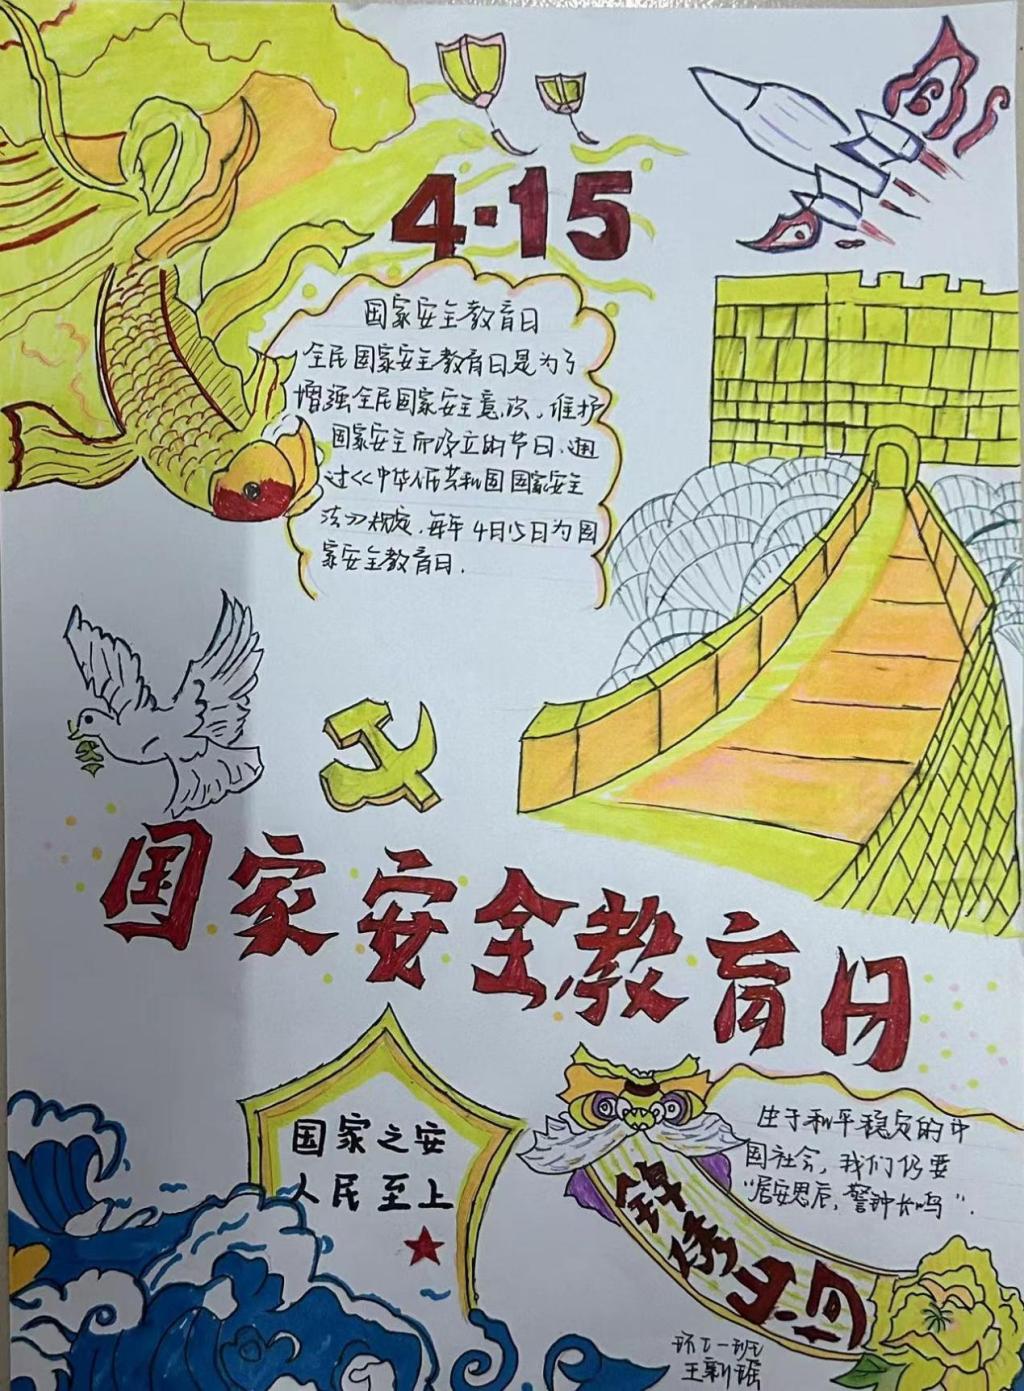 4·15
国家安全教育日
全民国家安全教育日是为了
增强全民国家安全意识、维护
国家安全而设立的节日.通
过<<中华人民共和国国家安全
法>>规定,每年4月15日为国
家安全教育日.
国家安全教育日
国家之安
人民至上
生于和平稳定的中
国社会,我们仍要
"居安思危,警钟长鸣".
锦绣山河
环工一班
王新瑶